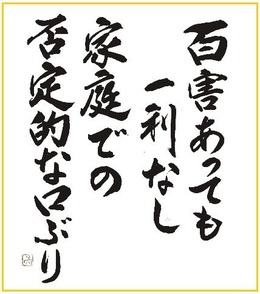 百害あっても
一利なし
家庭での
否定的な口ぶり